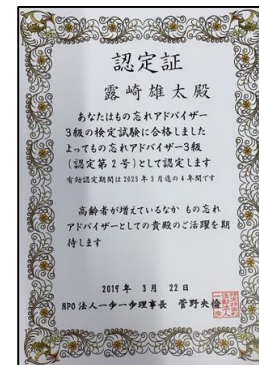 認定証
露崎雄太殿
あなたはもの忘れアドバイザー
3級の検定試験に合格しました
よってもの忘れアドバイザー3級
(認定第2号)として認定します
有効認定期間は2023年3月迄の4年間です
高齢者が増えているなか もの忘れ
アドバイザーとしての貴殿のご活躍を期
待します
2019年 3月 22日
NPO法人一歩一歩理事長 菅野